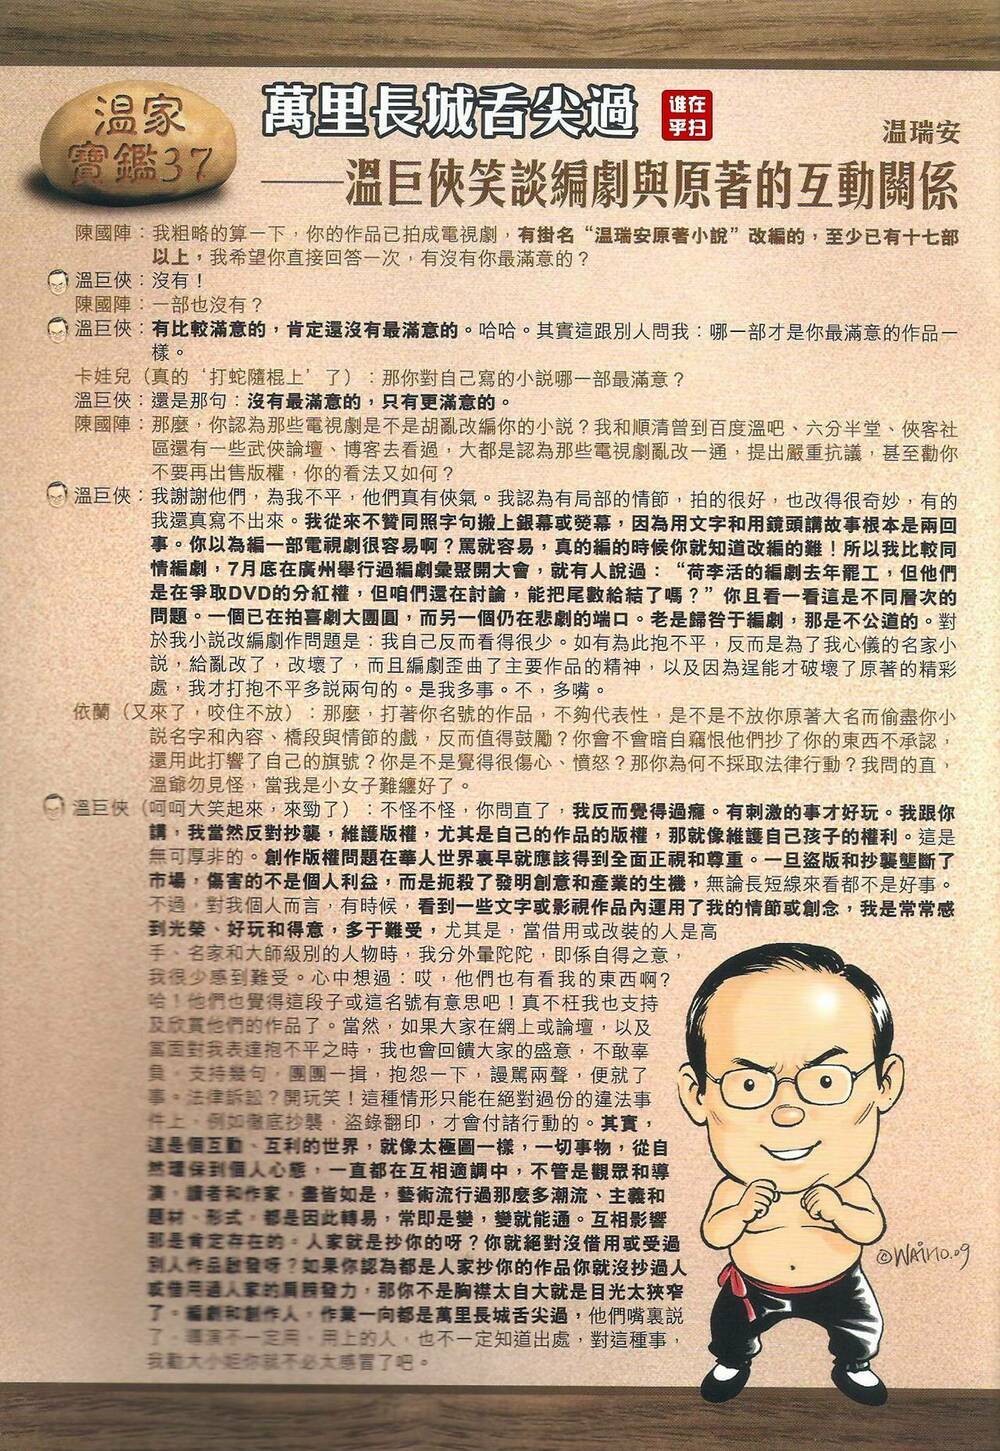 温家
寶鑑37
萬里長城舌尖過
谁在
乎扫
温瑞安
──溫巨俠笑談編劇與原著的互動關係
陳國陣：我粗略的算一下，你的作品已拍成電視劇，有掛名“溫瑞安原著小說”改編的，至少已有十七部
以上，我希望你直接回答一次，有沒有你最滿意的？
溫巨俠：沒有！
陳國陣：一部也沒有？
溫巨俠：有比較滿意的，肯定還沒有最滿意的。哈哈。其實這跟別人問我：哪一部才是你最滿意的作品一
樣。
卡娃兒（真的‘打蛇隨棍上’了）：那你對自己寫的小說哪一部最滿意？
溫巨俠：還是那句：沒有最滿意的，只有更滿意的。
陳國陣：那麼，你認為那些電視劇是不是胡亂改編你的小說？我和順清曾到百度溫吧、六分半堂、俠客社
區還有一些武俠論壇、博客去看過，大都是認為那些電視劇亂改一通，提出嚴重抗議，甚至勸你
不要再出售版權，你的看法又如何？
溫巨俠：我謝謝他們，為我不平，他們真有俠氣。我認為有局部的情節，拍的很好，也改得很奇妙，有的
我還真寫不出來。我從來不贊同照字句搬上銀幕或熒幕，因為用文字和用鏡頭講故事根本是兩回
事。你以為編一部電視劇很容易啊？罵就容易，真的編的時候你就知道改編的難！所以我比較同
情編劇，7月底在廣州舉行過編劇彙聚開大會，就有人說過：“荷李活的編劇去年罷工，但他們
是在爭取DVD的分紅權，但咱們還在討論，能把尾數給結了嗎？”你且看一看這是不同層次的
問題。一個已在拍喜劇大團圓，而另一個仍在悲劇的端口。老是歸咎于編劇，那是不公道的。對
於我小說改編劇作問題是：我自己反而看得很少。如有為此抱不平，反而是為了我心儀的名家小
說，給亂改了，改壞了，而且編劇歪曲了主要作品的精神，以及因為逞能才破壞了原著的精彩
處，我才打抱不平多說兩句的。是我多事。不，多嘴。
依蘭（又來了，咬住不放）：那麼，打著你名號的作品，不夠代表性，是不是不放你原著大名而偷盡你小
說名字和內容、橋段與情節的戲，反而值得鼓勵？你會不會暗自竊恨他們抄了你的東西不承認，
還用此打響了自己的旗號？你是不是覺得很傷心、憤怒？那你為何不採取法律行動？我問的直，
溫爺勿見怪，當我是小女子難纏好了。
溫巨俠（呵呵大笑起來，來勁了）：不怪不怪，你問直了，我反而覺得過癮。有刺激的事才好玩。我跟你
講，我當然反對抄襲，維護版權，尤其是自己的作品的版權，那就像維護自己孩子的權利。這是
無可厚非的。創作版權問題在華人世界裏早就應該得到全面正視和尊重。一旦盜版和抄襲壟斷了
市場，傷害的不是個人利益，而是扼殺了發明創意和產業的生機，無論長短線來看都不是好事。
不過，對我個人而言，有時候，看到一些文字或影視作品內運用了我的情節或創念，我是常常感
到光榮、好玩和得意，多于難受，尤其是，當借用或改裝的人是高
手、名家和大師級別的人物時，我分外暈陀陀，即係自得之意，
我很少感到難受。心中想過：哎，他們也有看我的東西啊？
哈！他們也覺得這段子或這名號有意思吧！真不枉我也支持
及欣賞他們的作品了。當然，如果大家在網上或論壇，以及
當面對我表達抱不平之時，我也會回饋大家的盛意，不敢辜
負，支持幾句，團團一揖，抱怨一下，謾罵兩聲，便就了
事。法律訴訟？開玩笑！這種情形只能在絕對過份的違法事
件上，例如徹底抄襲，盜錄翻印，才會付諸行動的。其實，
這是個互動、互利的世界，就像太極圖一樣，一切事物，從自
然環保到個人心態，一直都在互相適調中，不管是觀眾和導
演，讀者和作家，盡皆如是，藝術流行過那麼多潮流、主義和
題材、形式，都是因此轉易，常即是變，變就能通。互相影響
那是肯定存在的。人家就是抄你的呀？你就絕對沒借用或受過
別人作品啟發呀？如果你認為都是人家抄你的作品你就沒抄過人
或借用過人家的肩膀發力，那你不是胸襟太自大就是目光太狹窄
了。編劇和創作人，作業一向都是萬里長城舌尖過，他們嘴裏説
了，導演不一定用，用上的人，也不一定知道出處，對這種事，
我勸大小姐你就不必太感冒了吧。
©WAiHO.09